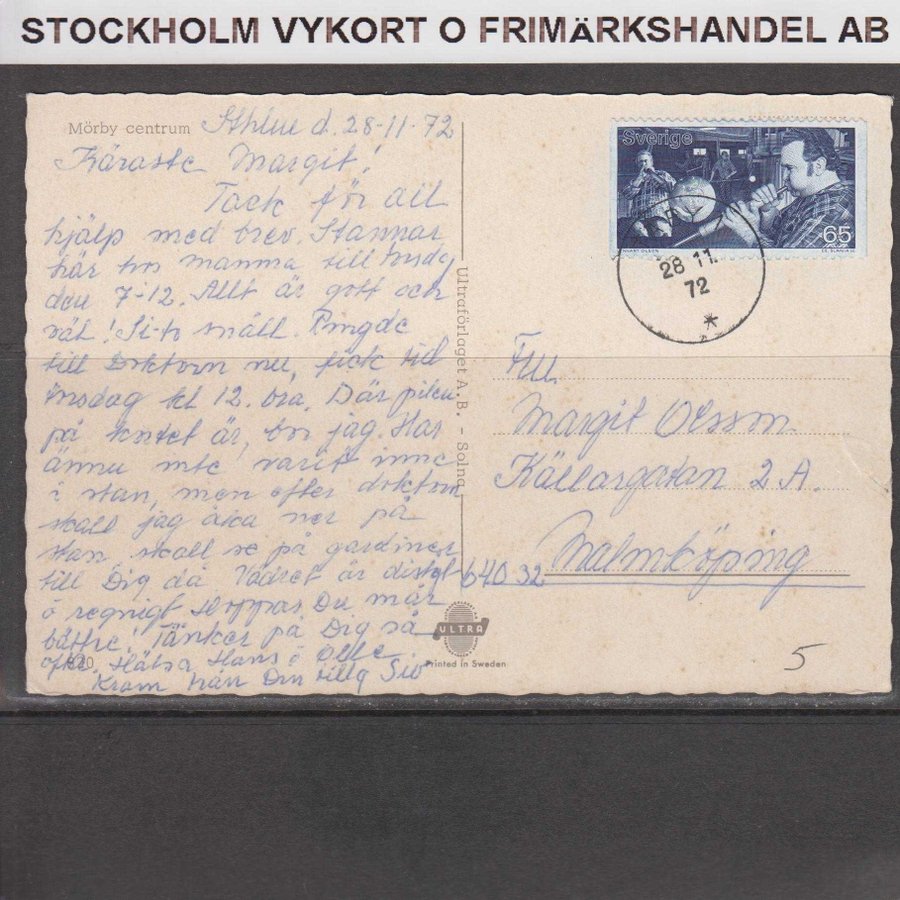 STOCKHOLM VYKORT O FRIMÄRKSHANDEL AB
Mörby centrum
Sthlm d. 28-11-72
Käraste Margit!
Tack för all
hjälp med brev. Stannar
här hos mamma till torsdag
den 7-12. Allt är gott och
väl! Si-to snäll. Ringde
till Doktorn nu, fick till
torsdag kl 12. bra. Där pilen
på kortet är, bor jag. Har
ännu inte varit inne
i stan, men efter doktorn
skall jag åka ner på
stan skall se på gardiner
till Dig då Vädret är disigt
o regnigt Hoppas Du mår
bättre! Tänker på Dig så
ofta. Hälsa Hans o Olle
Kram från Din tillg Siv
820
Ultraförlaget A. B. - Solna
ULTRA
Printed in Sweden
Sverige
65
28 11
72
Fru
Margit Olsson
Källargatan 2 A.
640 32 Malmköping
5